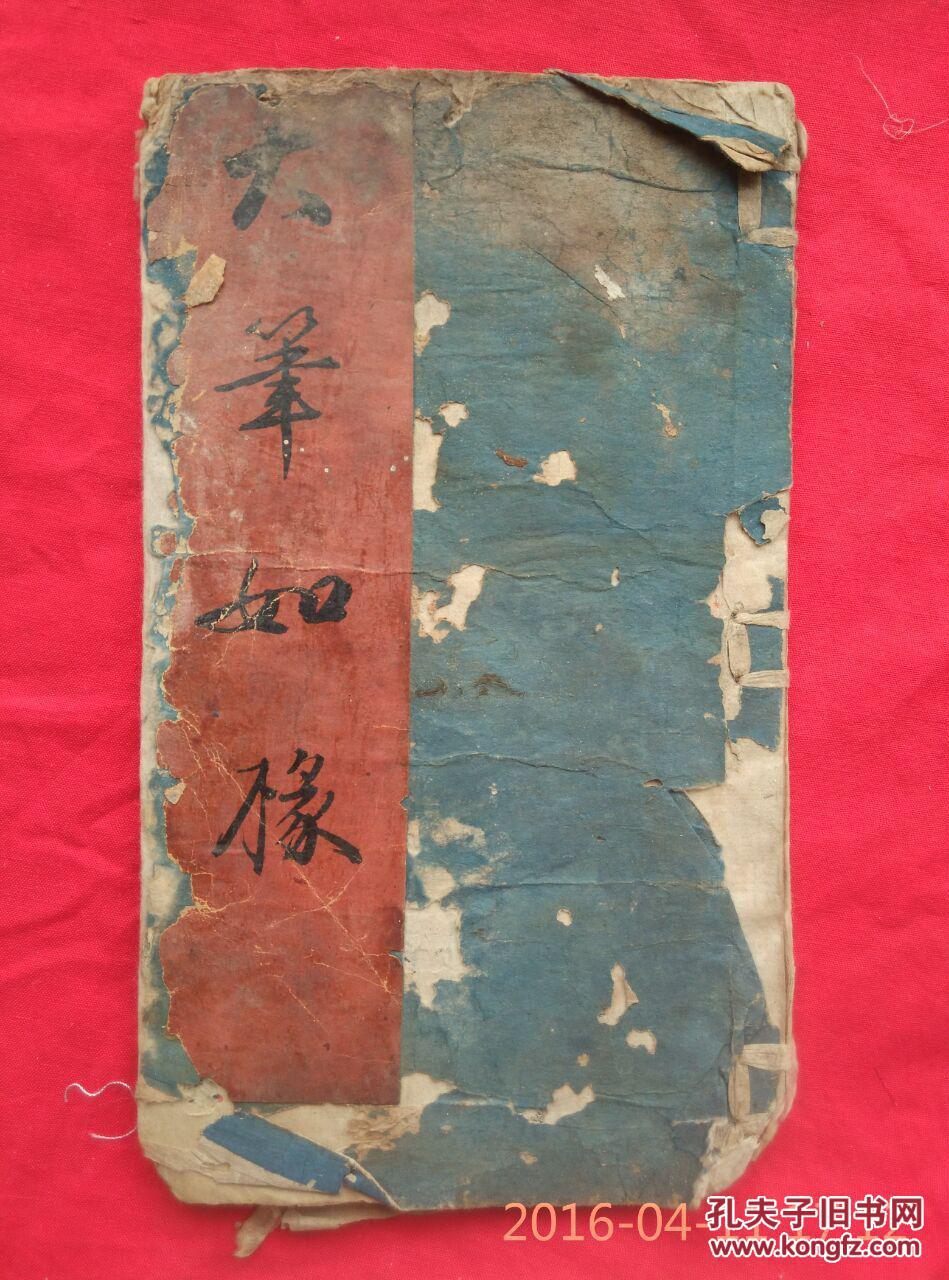 大筆如椽
2016-04-11 17:12
孔夫子旧书网
www.kongfz.com